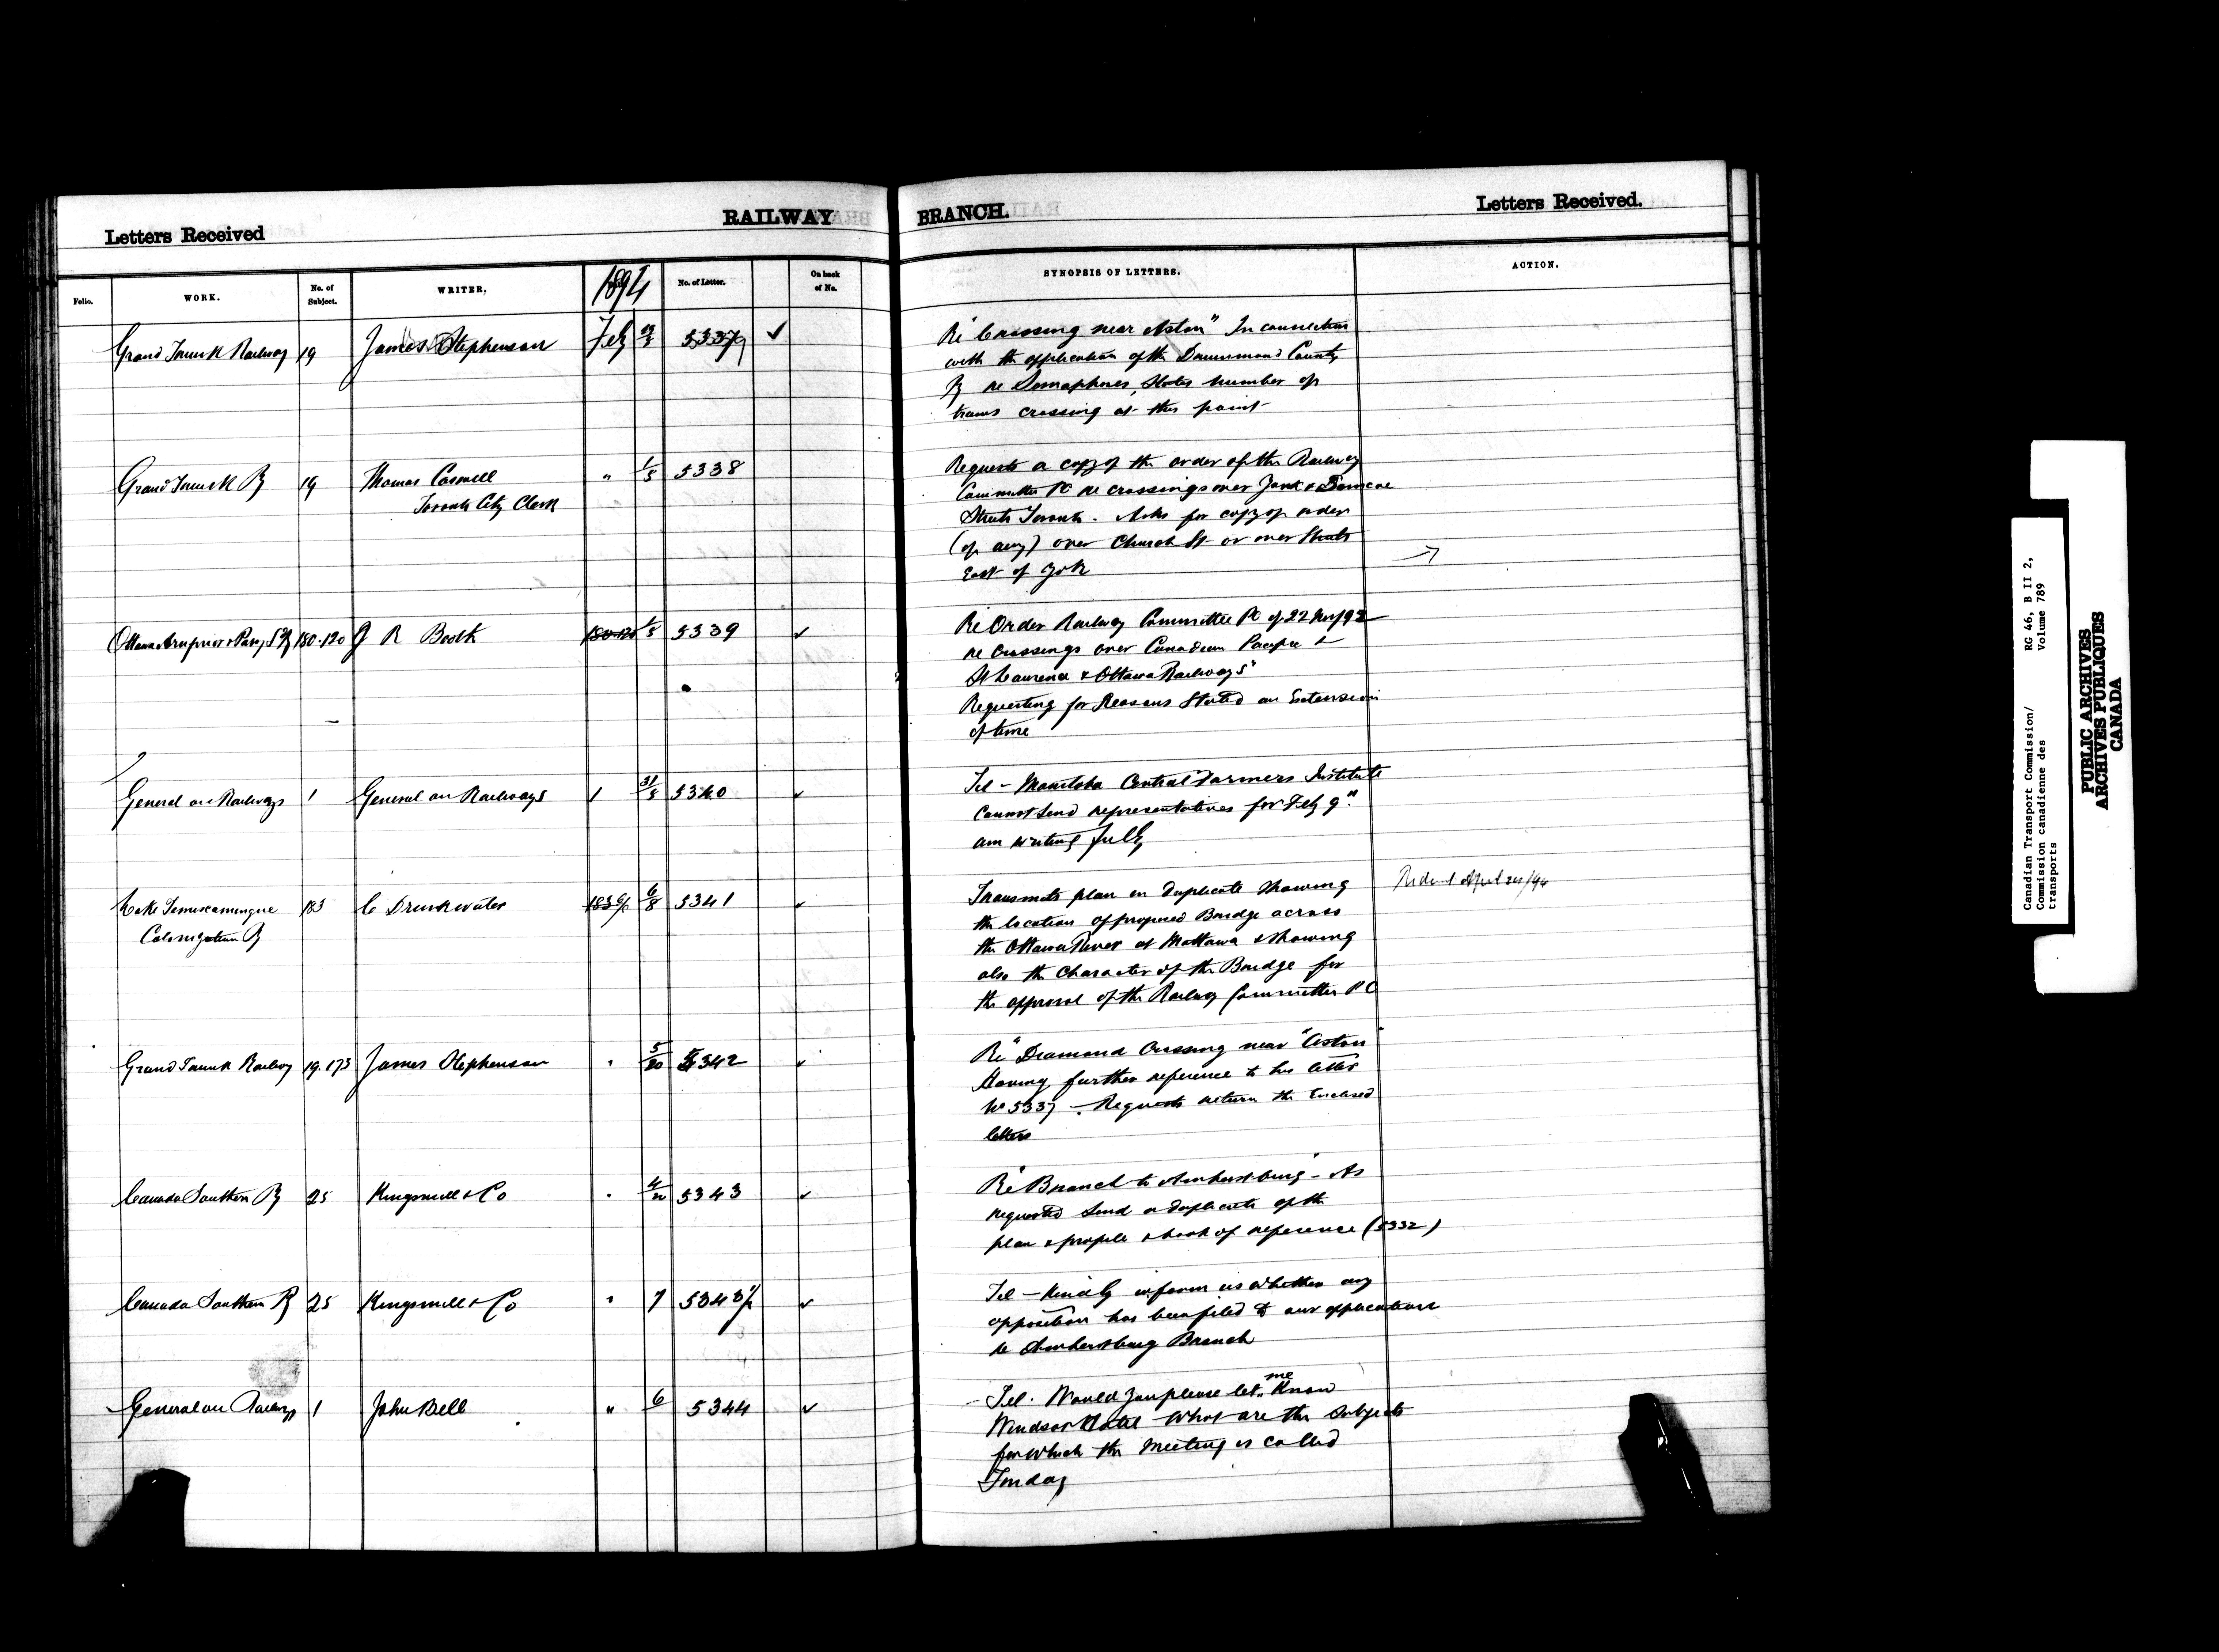 Letters Received
RAILWAY
BRANCH.
Letters Received.
Folio.
WORK.
No. of Subject.
WRITER.
1894
No. of Letter.
On back of No.
SYNOPSIS OF LETTERS.
ACTION.
Grand Trunk Railway 19 James Stephenson Feb 5337 ✓
Re "Crossing near Aston" In connection
with the application of the Drummond County
Ry re Semaphores, States number of
trains crossing at this point
Grand Trunk Ry 19 Thomas Caswell " 1/5 5338
Toronto City Clerk
Requests a copy of the order of the Railway
Committee PC re crossings over York & Simcoe
Streets Toronto. Asks for copy of order
(if any) over Church St or over Streets
East of York
Ottawa Arnprior & Parry Sd Ry 180-120 J R Booth 5339 ✓
Re Order Railway Committee PC of 22 Nov/92
re crossings over Canadian Pacific &
St Laurence & Ottawa Railways"
Requesting for Reasons Stated an Extension
of time
General on Railways 1 General on Railways 31/5 5340 ✓
Tel - Manitoba Central Farmers Institute
Cannot send representatives for Feby 9".
am writing fully
Lake Temiscamingue 183 C Drinkwater 6/8 5341 ✓
Colonization Ry
Transmits plan in duplicate showing
the location of proposed Bridge across
the Ottawa River at Mattawa & showing
also the Character of the Bridge for
the approval of the Railway Committee PC
April 24/94
Grand Trunk Railway 19.173 James Stephenson " 5/20 5342 ✓
Re "Diamond Crossing near "Aston"
Having further reference to his letter
No 5337 - Requests return the Enclosed
letters
Canada Southern Ry 25 Kingsmill & Co " 5343 ✓
Re "Branch to Amherstburg" - As
requested Send a duplicate of the
plan & profile & book of reference (5332)
Canada Southern Ry 25 Kingsmill & Co " 7 5343½ ✓
Tel - Kindly inform us whether any
opposition has been filed to our application
re Amherstburg Branch
General on Railways 1 John Bell " 6 5344 ✓
Tel. Would you please let me Know
Windsor Hotel what are the subjects
for which the Meeting is called
Friday
Canadian Transport Commission/ RG 46, B II 2,
Commission canadienne des Volume 789
transports
PUBLIC ARCHIVES
ARCHIVES PUBLIQUES
CANADA